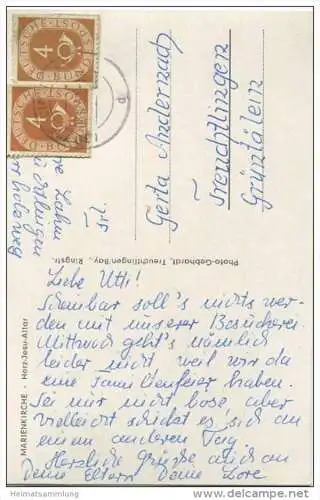 4
DEUTSCHE BUNDESPOST
4
DEUTSCHE BUNDESPOST
Frl.
Gerta Andernach
Treuchtlingen
Grüntälein
Photo-Gebhardt, Treuchtlingen/Bay., Ringstr.
MARIENKIRCHE - Herz-Jesu-Altar
Liebe Utti!
Scheinbar soll's nichts wer-
den mit unserer Besucherei.
Mittwoch geht's nämlich
leider nicht weil wir da
eine haben.
Sei mir nicht böse, aber
vielleicht schickt es sich an
einem anderen Tag.
Herzliche Grüße auch an
Deine Eltern Deine Lore
© Heimatsammlung
www.ansichtskarten-center.de